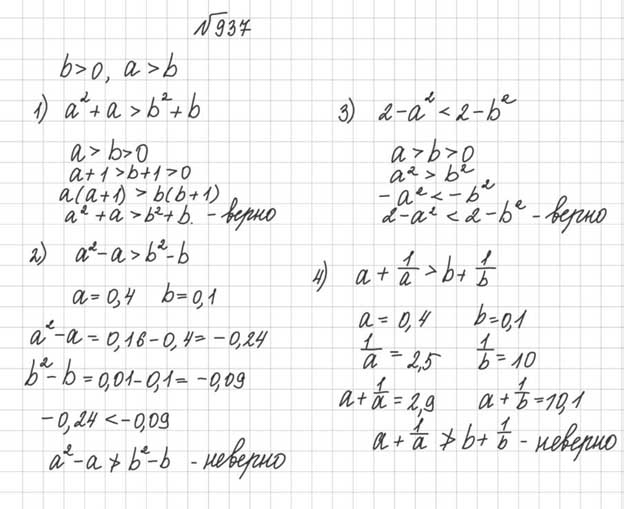 №937
b>0, a>b
1) a²+a>b²+b
a>b>0
a+1>b+1>0
a(a+1)>b(b+1)
a²+a>b²+b. - верно
2) a²-a>b²-b
a=0,4 b=0,1
a²-a=0,16-0,4=-0,24
b²-b=0,01-0,1=-0,09
-0,24<-0,09
a²-a≯b²-b - неверно
3) 2-a²<2-b²
a>b>0
a²>b²
-a²<-b²
2-a²<2-b² - верно
4) a+1/a>b+1/b
a=0,4 b=0,1
1/a=2,5 1/b=10
a+1/a=2,9 a+1/b=10,1
a+1/a≯b+1/b - неверно